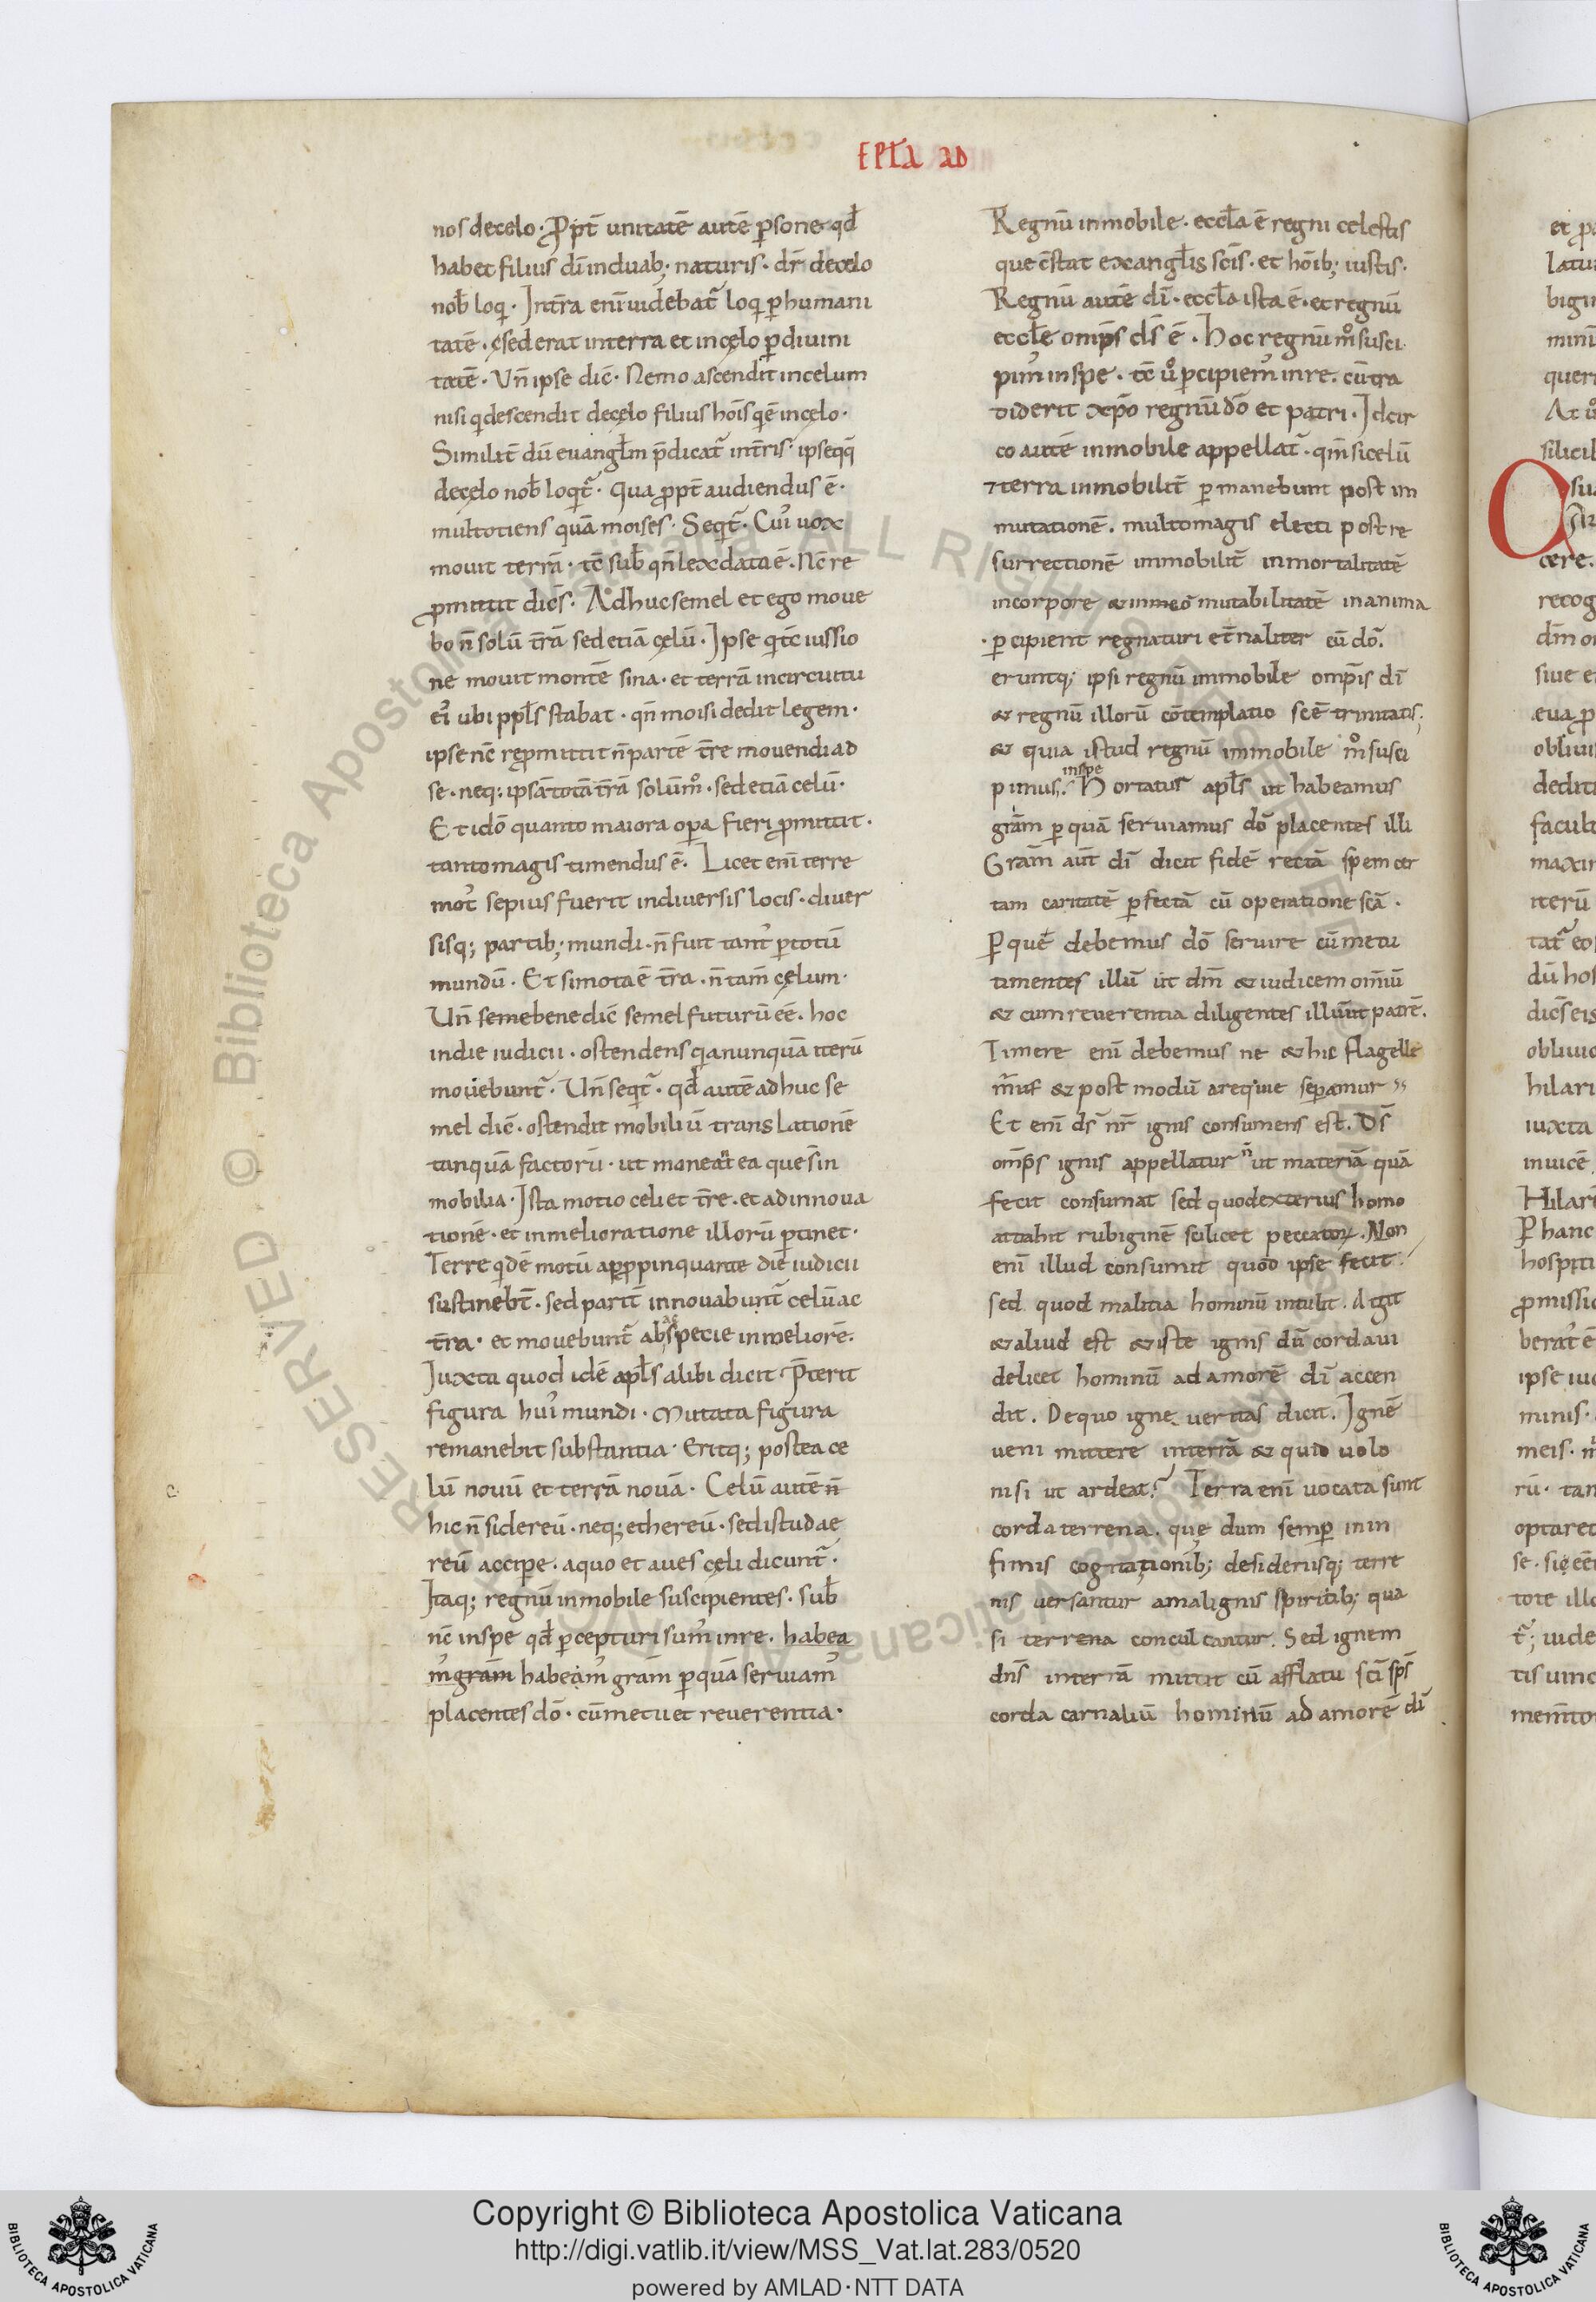 EPLA AD
nos decelo· Ppt̄ unitatē autē psone qđ
habet filius dī induab; naturis· dr̄ decelo
nob̄ loq· Int̄ra enī uidebat̃ loq p humani
tatē· ęsed erat interra et incęlo p diuini
tatē· Vn̄ ipse dic̄· Nemo ascendit incelum
nisi q descendit decęlo filius hōis q ē incęlo·
Similit̄ dū euangl̄m p̄dicat̃ int̄ris· ipse qq̄
decęlo nob̄ loqt̃· Qua ppt̄ audiendus ē·
multotiens quā moises· Seqt̃· Cuı̓ uox
mouit terrā· tc̄ sub̄ qn̄ lex data ē· Nc̄ re
pmittit dic̄s· Adhuc semel et ego moue
bo n̄ solū t̄rā sed etiā cęlū· Ipse q tc̄ iussio
ne mouit montē sina· et terrā incircuitu
eı̓ ubi ppl̄s stabat· qn̄ moisi dedit legem·
ipse nc̄ repmittit n̄ partē t̄re mouendi ad
se· neq; ipsā totā t̄rā solūm̊· sed etiā celū·
Et idō quanto maiora opa fieri pmittit·
tanto magis timendus ē· Licet enī terre
mot̓ sepius fuerit indiuersis locis· diuer
sisq; partib; mundi· n̄ fuit tant̓ p totū
mundū· Et si mota ē t̄ra· n̄ tam̄ cęlum·
Vn̄ seme bene dic̄ semel futurū eē· hoc
indie iudicii· ostendens qa nunquā iterū
mouebunt̃· Vn̄ seqt̃· qđ autē adhuc se
mel dic̄· ostendit mobiliū translationē
tanquā factorū· ut maneat ea que s̄ in
mobilia· Ista motio celi et t̄re· et ad innoua
tionē· et inmelioratione illorū ptinet·
Terre qdē motū appropinquante die iudicii
sustinebt̄· sed parit̄ innouabunt̃ celū ac
t̄ra· et mouebunt̃ ab specie inmeliorē·
Juxta quod idē apl̄s alibi dicit· P̄terit
figura huı̓ mundi· Mutata figura
remanebit substantia· Eritq; postea ce
lū nouū et terrā nouā· Celū autē n̄
hic n̄ sidereū· neq; ethereū· sed istud ae
reū accipe· aquo et aues cęli dicunt̃·
Itaq; regnū inmobile suscipientes· sub̄
nc̄ inspe qđ p cepturi sum̓ inre· habea
m̓ grām habeam̓ grām p quā seruiam̓
placentes dō· cū metu et reuerentia·
Regnū inmobile· eccl̄a ē regni celestis
que c̄stat ex angl̄is sc̄is· et hōib; iustis·
Regnū autē dī· eccl̄a ista ē· et regnū
eccl̄e omp̄s ds̄ ē· Hoc regnū m̊ susci
pim̓ inspe· tc̄ ů pcipiem̓ inre· cū tra
diderit xp̄o regnū dō et patri· Idcir
co autē inmobile appellat̃· qm̄ si celū
⁊ terra inmobilit̄ pmanebunt post im
mutationē· multo magis electi post re
surrectionē immobilit̄ inmortalitatē
incorpore & inmutabilitatē inanima
pcipient regnaturi et̄naliter cū dō·
eruntq; ipsi regnū immobile omp̄is dī
& regnū illorū cōtemplatio scē trinitatis;
& quia istud regnū immobile m̊ susci
inspe
pimus. Hortatur apl̄s ut habeamus
grām p quā seruiamus dō placentes illi
Grām aut̄ dī dicit fidē rectā spem cer
tam caritatē pfectā cū operatione scā·
P quē debemus dō seruire cū metu
timentes illū ut dm̄ & iudicem omniū
& cum reuerentia diligentes illū ut patrē.
Timere enī debemus ne & hic flagelle
m̃ & post modū a requie sepamur
Et enī ds̄ nr̄ ignis consumens est. Ds̄
omp̄s ignis appellatur n̄ ut materiā quā
fecit consumat sed quod exterius homo
attahit rubiginē scilicet peccator. Non
enī illud consumit quod ipse fecit.
sed quod malitia hominū intulit. Atgit
& aliud est & iste ignis dū corda ui
delicet hominū ad amorē dī accen
dit. Dequo igne ueritas dicit. Ignē
ueni mittere interrā & quid uolo
nisi ut ardeat? Terra enī uocata sunt
corda terrena. que dum semp in in
fimis cogitationib; desideriisq; terre
nis uersantur amalignis spiritib; qua
si terrena conculcantur. Sed ignem
dn̄s interrā mittit cū afflatu sc̄i sps̄
corda carnaliū hominū ad amorē dī
Copyright © Biblioteca Apostolica Vaticana
http://digi.vatlib.it/view/MSS_Vat.lat.283/0520
powered by AMLAD·NTT DATA